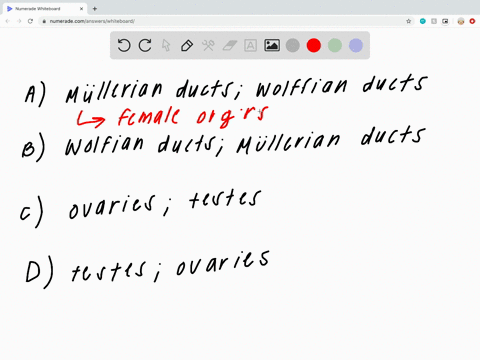 Numerade Whiteboard
numerade.com/answers/whiteboard/
A) Müllerian ducts; Wolffian ducts
↳ Female orgirs
B) Wolfian ducts; Müllerian ducts
C) ovaries; testes
D) testes; ovaries